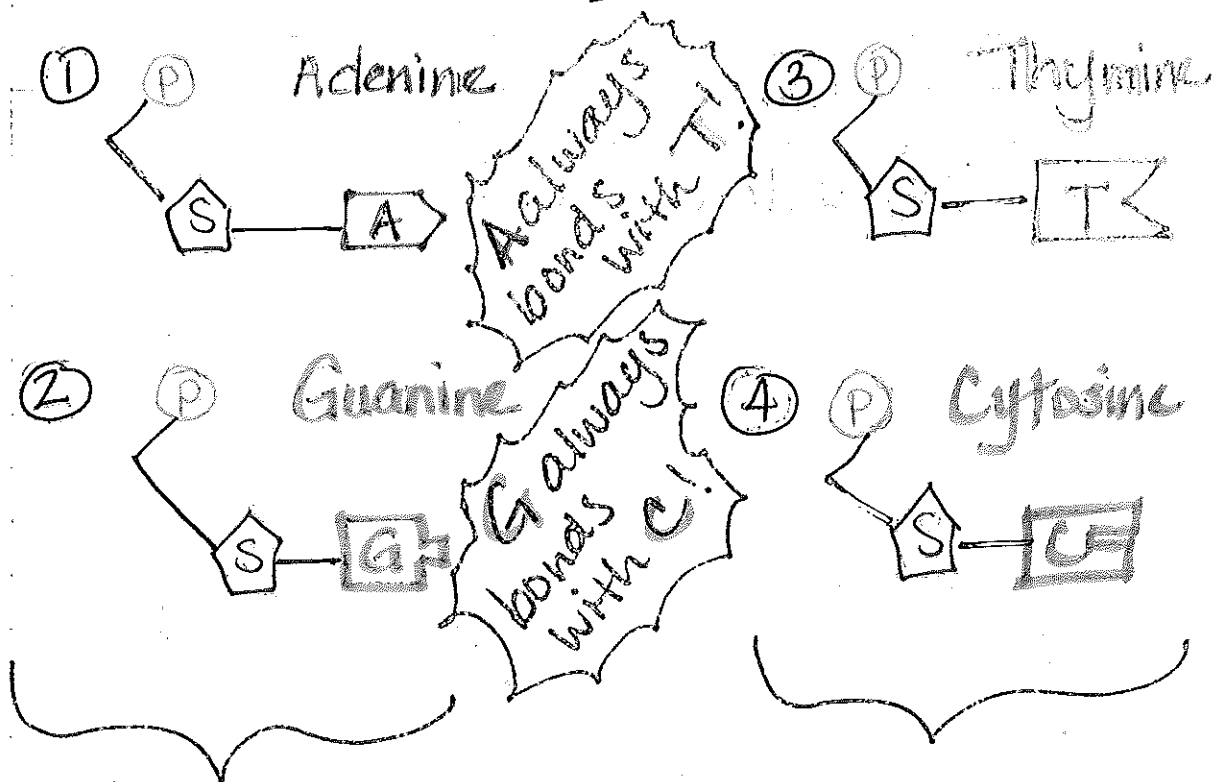 ① P Adenine
S A
A always
bonds
with T!
③ P Thymine
S T
② P Guanine
S G
G always
bonds
with C!
④ P Cytosine
S C